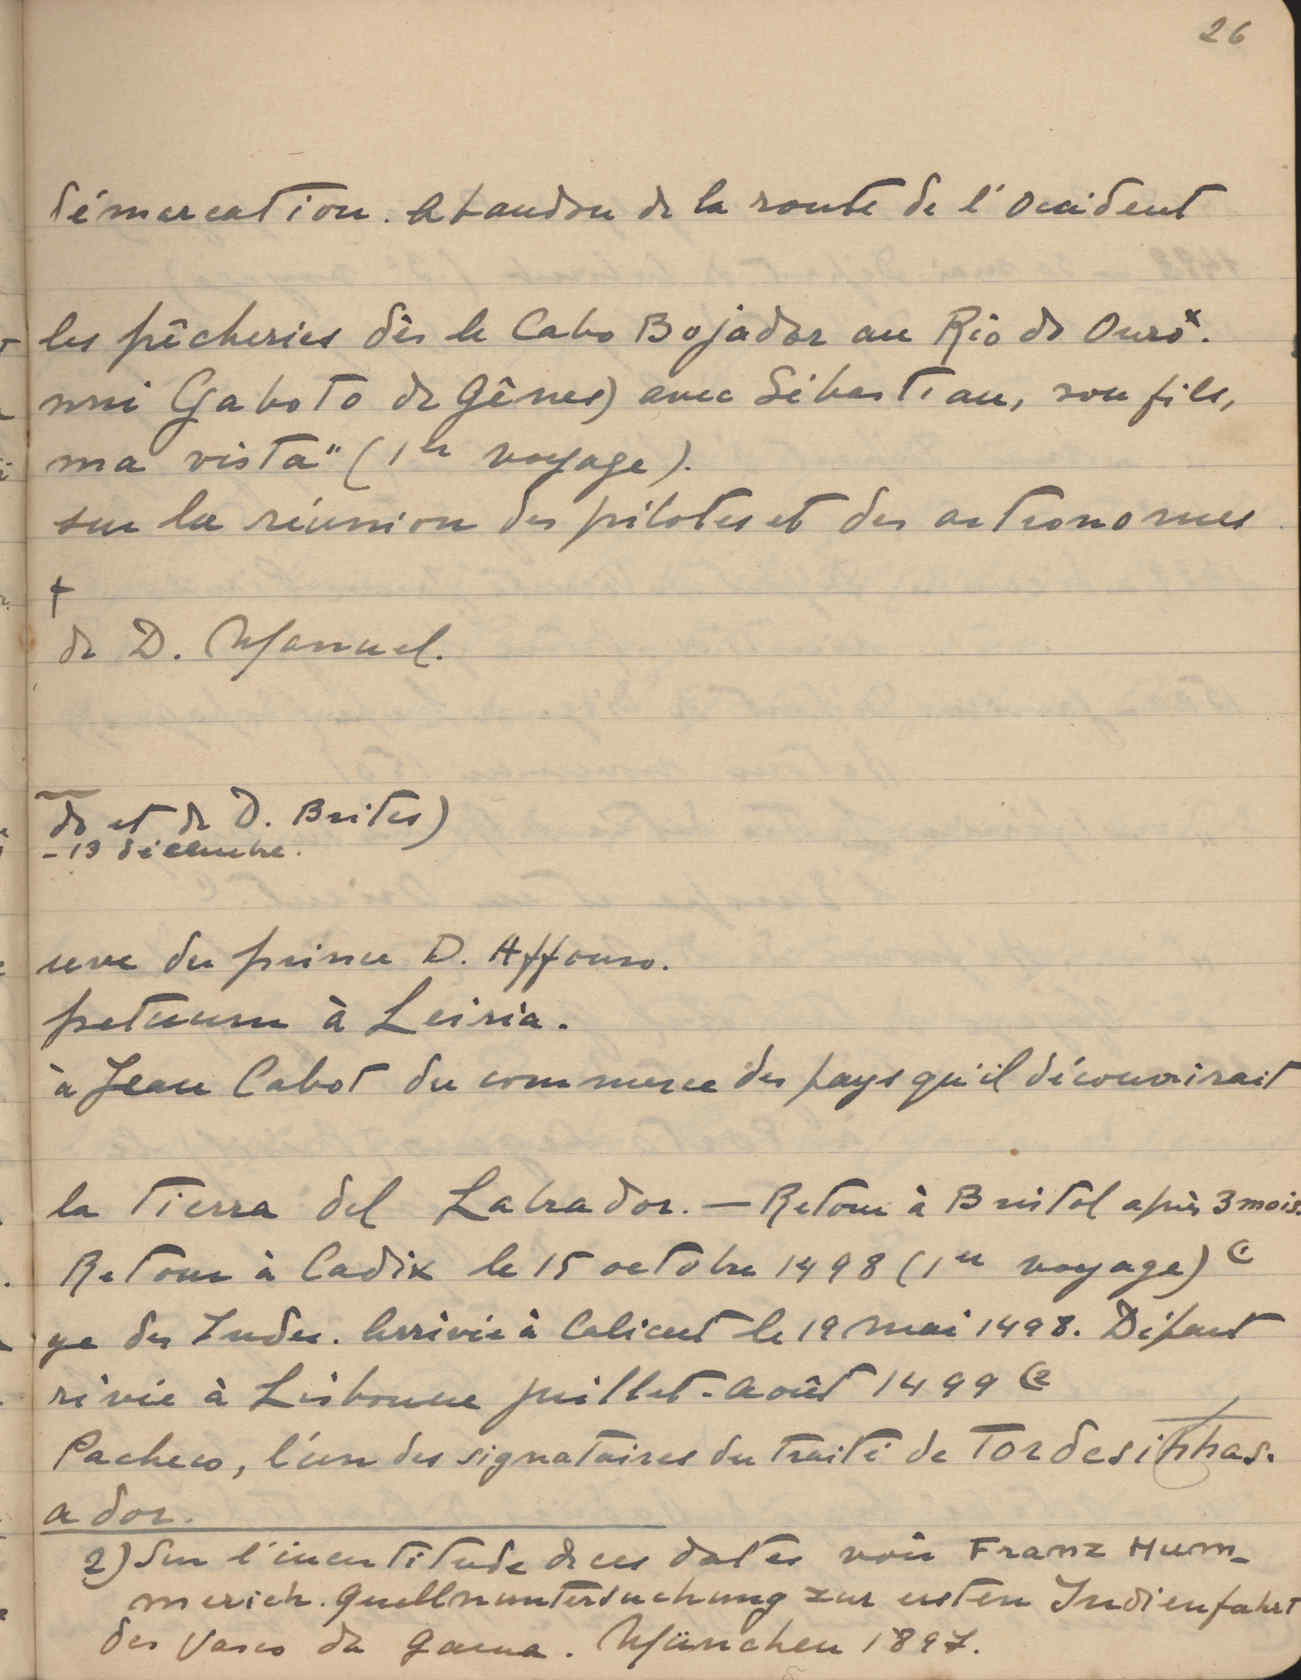 26
démarcation. Abandon de la route de l'Occident
les pêcheries dès le Cabo Bojador au Rio do Ouro x.
nni Gaboto de Gênes) avec Sébastian, son fils,
ma vista" (1er voyage).
sur la réunion des pilotes et des astronomes
+
de D. Manuel.
do et de D. Brites)
- 13 décembre.
euve du prince D. Affonso.
petuum à Leiria.
à Jean Cabot du commerce des pays qu'il découvrirait
la Tierra del Labrador. — Retour à Bristol après 3 mois.
Retour à Cadix le 15 octobre 1498 (1er voyage) (1
ge des Indes. Arrivée à Calicut le 19 mai 1498. Départ
rivée à Lisbonne juillet-Août 1499 (2
Pacheco, l'un des signataires du traité de Tordesilhas.
ador.
2) Sur l'incertitude de ces dates voir Franz Hum-
merich. Quellnuntersuchung zur ersten Indienfahrt
des Vasco da Gama. München 1897.